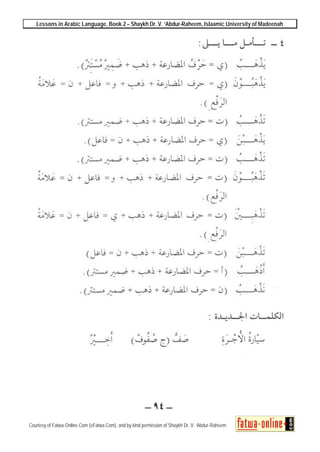 Lessons in Arabic Language, Book 2 – Shaykh Dr. V. 'Abdur-Raheem, Islaamic University of Madeenah
٤ ــ تـــأمـل مـــا يـــلى :
يَذْهَـــبُ (ي = حَرْفُ المضارعة + ذهب + ضَمِيْرٌ مُسْتَتِرٌ).
يَذْهَبُـــوْنَ (ي = حرف المضارعة + ذهَب + و = فاعل + ن = عَلاَمَةُ
الرَفْعِ ).
تَذْهَـــبُ (ت = حرف المضارعة + ذَهب + ضمير مستتر).
يَذْهَـــبْنَ (ي = حرف المضارعة + ذهَب + ن = فاعل).
تَذْهَـــبُ (ت = حرف المضارعة + ذَهب + ضمير مستتر).
تَذْهَبُـــوْنَ (ت = حرف المضارعة + ذَهب + و = فاعل + ن = عَلاَمَةُ
الرَفْعِ ).
تَذْهَبِـــيْنَ (ت = حرف المضارعة + ذَهب + ي = فاعل + ن = عَلاَمَةُ
الرَفْعِ ).
تَذْهَـــبْنَ (ت = حرف المضارعة + ذَهب + ن = فاعل)
أَذْهَـــبُ (أ = حرف المضارعة + ذَهب + ضمير مستتر).
نَذْهَـــبُ (ن = حرف المضارعة + ذَهب + ضمير مستتر).
الكلمـــات الجـــديـــدة :
سَيَّارَةُ الْأُجْـــرَةِ صَفٌّ (ج صُفُوفٌ) أَخِـــيْرٌ
ــ ٩٤ ــ
Courtesy of Fatwa-Online.Com (eFatwa.Com), and by kind permission of Shaykh Dr. V. 'Abdur-Raheem
fatwa-online.com